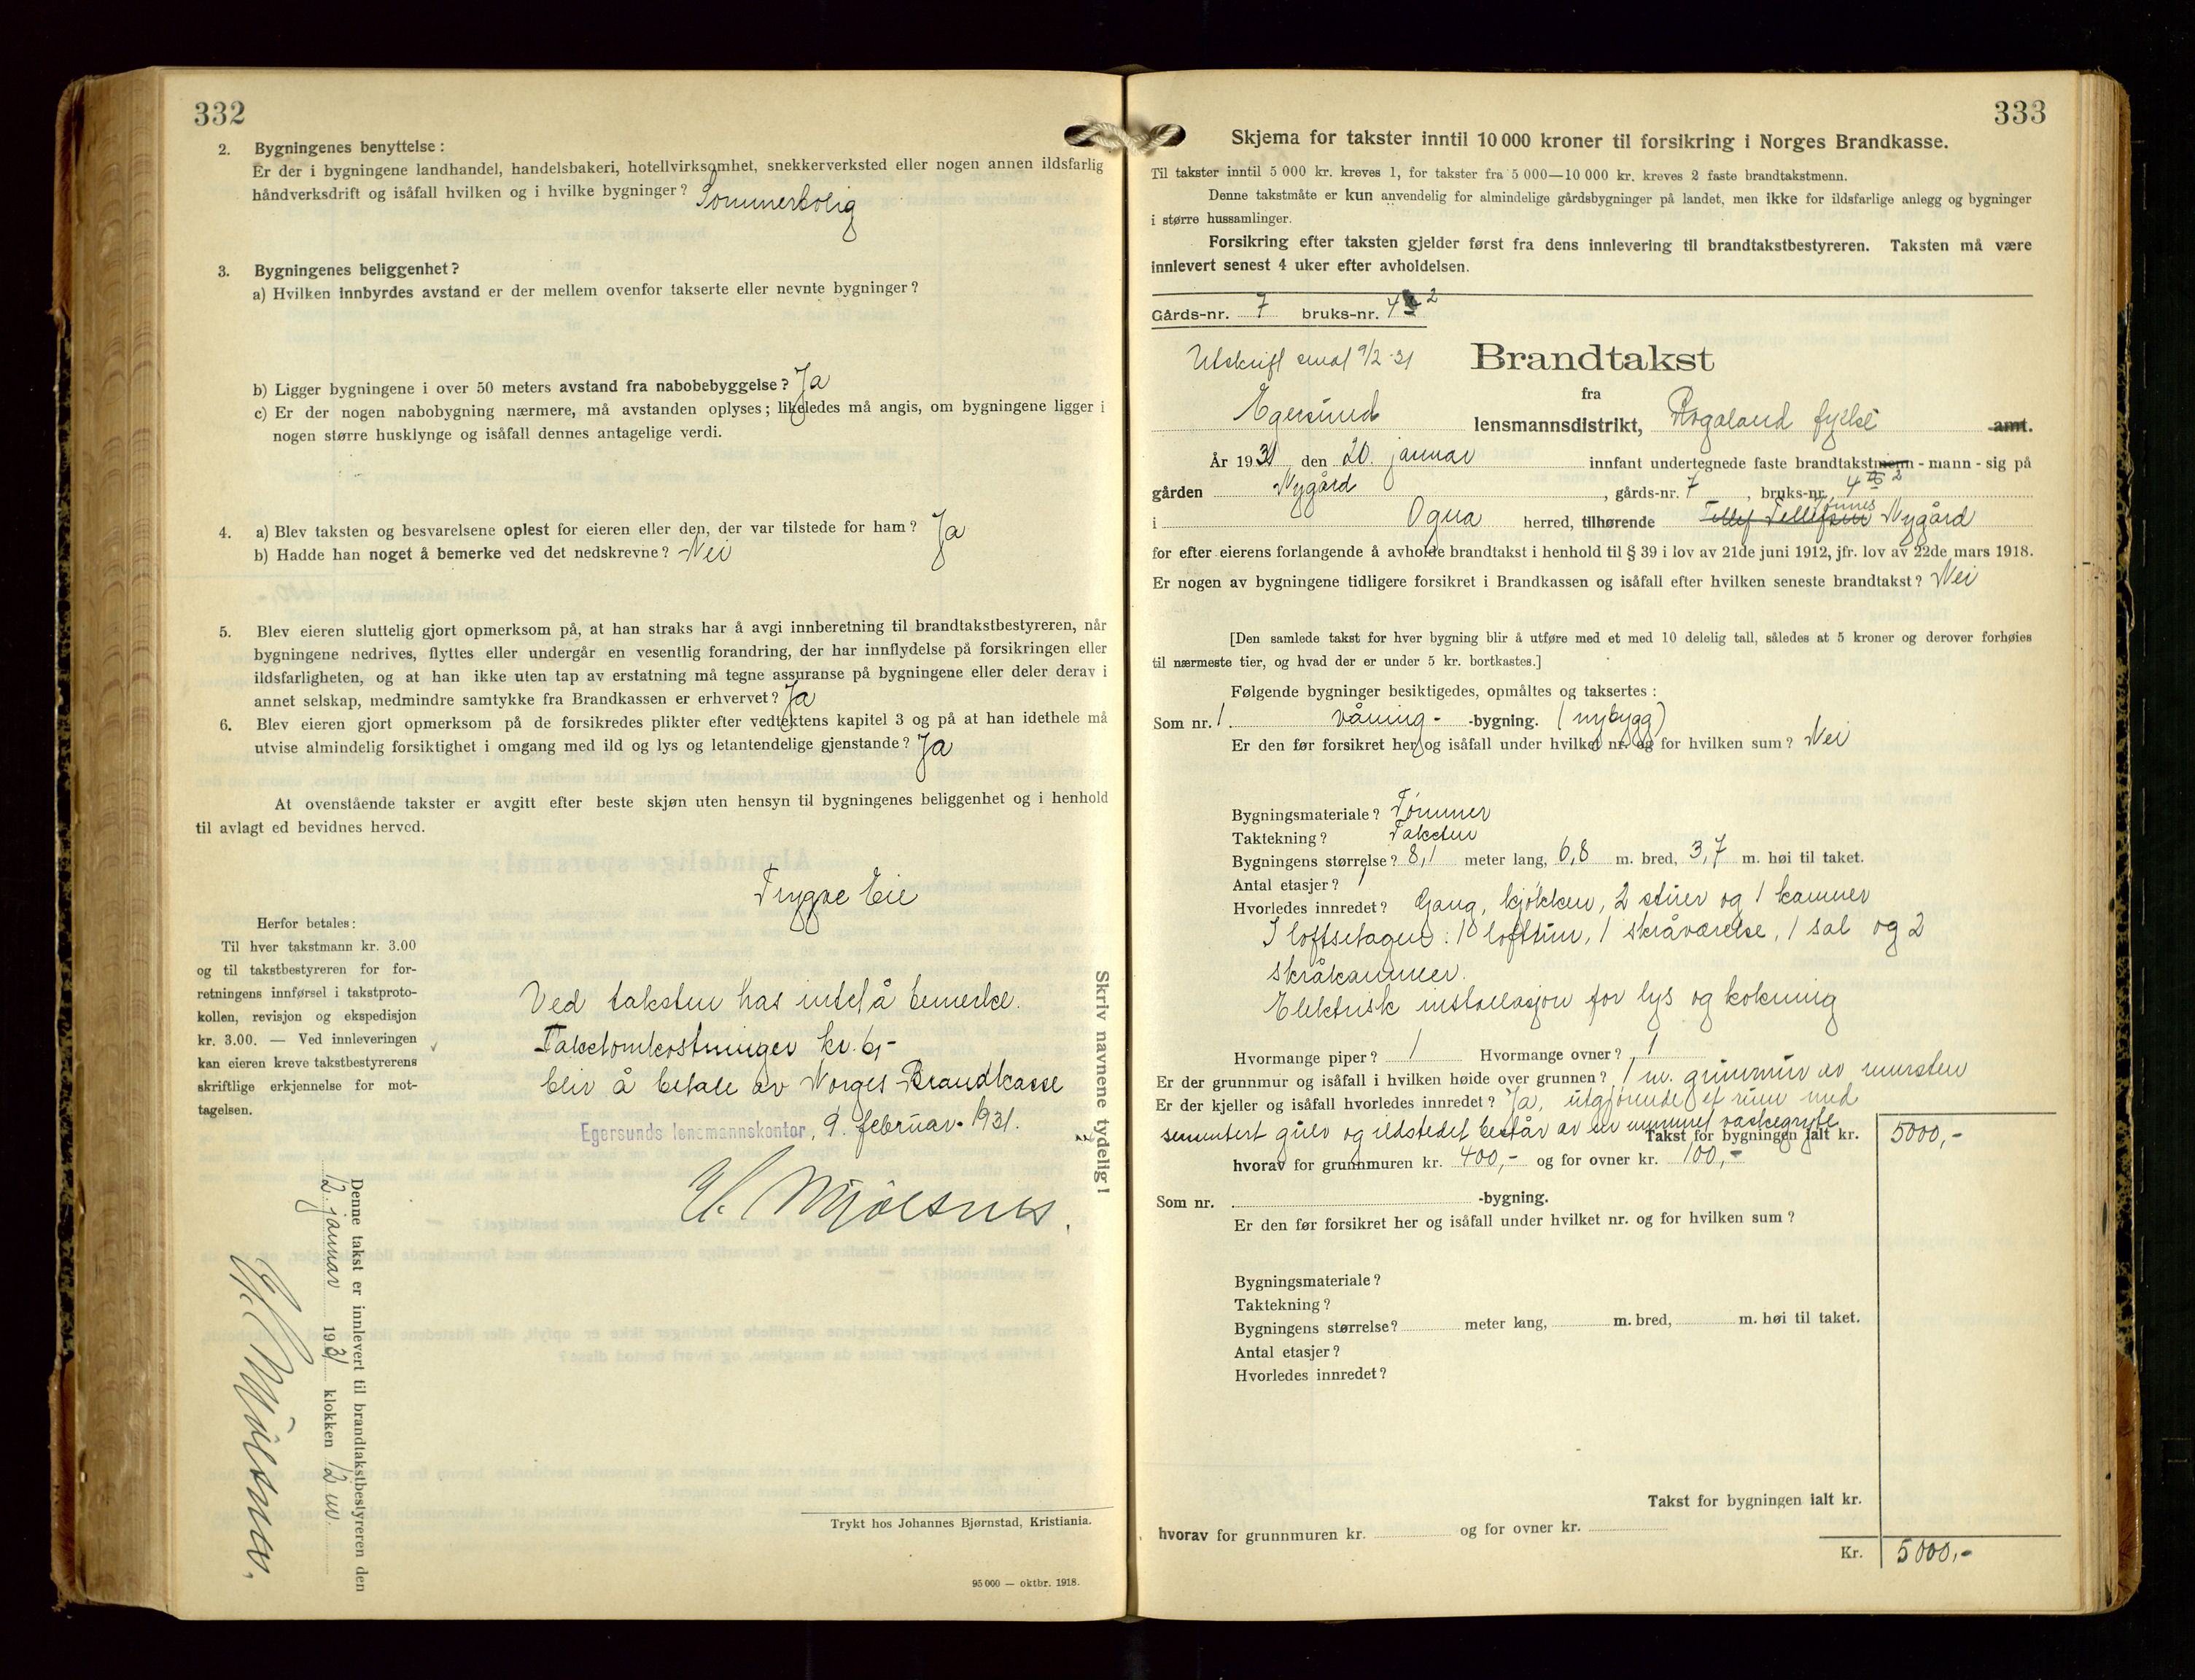 332
2. Bygningenes benyttelse:
Er der i bygningene landhandel, handelsbakeri, hotellvirksomhet, snekkerverksted eller nogen annen ildsfarlig
håndverksdrift og isåfall hvilken og i hvilke bygninger? Sommerbolig
3. Bygningenes beliggenhet?
a) Hvilken innbyrdes avstand er der mellem ovenfor takserte eller nevnte bygninger?
b) Ligger bygningene i over 50 meters avstand fra nabobebyggelse? Ja
c) Er der nogen nabobygning nærmere, må avstanden oplyses; likeledes må angis, om bygningene ligger i
nogen større husklynge og isåfall dennes antagelige verdi.
4. a) Blev taksten og besvarelsene oplest for eieren eller den, der var tilstede for ham? Ja
b) Hadde han noget å bemerke ved det nedskrevne? Nei
5. Blev eieren sluttelig gjort opmerksom på, at han straks har å avgi innberetning til brandtakstbestyreren, når
bygningene nedrives, flyttes eller undergår en vesentlig forandring, der har innflydelse på forsikringen eller
ildsfarligheten, og at han ikke uten tap av erstatning må tegne assuranse på bygningene eller deler derav i
annet selskap, medmindre samtykke fra Brandkassen er erhvervet? Ja
6. Blev eieren gjort opmerksom på de forsikredes plikter efter vedtektens kapitel 3 og på at han idethele må
utvise almindelig forsiktighet i omgang med ild og lys og letantendelige gjenstande? Ja
At ovenstående takster er avgitt efter beste skjøn uten hensyn til bygningenes beliggenhet og i henhold
til avlagt ed bevidnes herved.
Trygve Eie
Herfor betales:
Til hver takstmann kr. 3.00
og til takstbestyreren for for-
retningens innførsel i takstproto-
kollen, revisjon og ekspedisjon
kr. 3.00. — Ved innleveringen
kan eieren kreve takstbestyrerens
skriftlige erkjennelse for mot-
tagelsen.
Ved taksten has intet å bemerke.
Takstomkostninger kr. 6,-
blir å betale av Norges Brandkasse
Egersunds lensmannskontor, 9. februar 1931.
Mjølsnes.
Skriv navnene tydelig!
Denne takst er innlevert til brandtakstbestyreren den
12. januar 1931 klokken 12
Mjølsnes.
Trykt hos Johannes Bjørnstad, Kristiania.
95 000 — oktbr. 1918.
333
Skjema for takster inntil 10 000 kroner til forsikring i Norges Brandkasse.
Til takster inntil 5 000 kr. kreves 1, for takster fra 5 000—10 000 kr. kreves 2 faste brandtakstmenn.
Denne takstmåte er kun anvendelig for almindelige gårdsbygninger på landet, men ikke for ildsfarlige anlegg og bygninger
i større hussamlinger.
Forsikring efter taksten gjelder først fra dens innlevering til brandtakstbestyreren. Taksten må være
innlevert senest 4 uker efter avholdelsen.
Gårds-nr. 7 bruks-nr. 4 2
Utskrift 9/2-31
Brandtakst
fra
Egersund lensmannsdistrikt, Rogaland fylke amt.
År 1931 den 20. januar innfant undertegnede faste brandtakstmenn - mann - sig på
gården Nygård, gårds-nr. 7, bruks-nr. 4 2
i Ogna herred, tilhørende Tønnes Nygård
for efter eierens forlangende å avholde brandtakst i henhold til § 39 i lov av 21de juni 1912, jfr. lov av 22de mars 1918.
Er nogen av bygningene tidligere forsikret i Brandkassen og isåfall efter hvilken seneste brandtakst? Nei
[Den samlede takst for hver bygning blir å utføre med et med 10 delelig tall, således at 5 kroner og derover forhøies
til nærmeste tier, og hvad der er under 5 kr. bortkastes.]
Følgende bygninger besiktigedes, opmåltes og taksertes:
Som nr. 1 våning- -bygning. (nybygg)
Er den før forsikret her og isåfall under hvilket nr. og for hvilken sum? Nei
Bygningsmateriale? Tømmer
Taktekning? Taksten
Bygningens størrelse? 8,1 meter lang, 6,8 m. bred, 3,7 m. høi til taket.
Antal etasjer? 1
Hvorledes innredet? Gang, kjøkken, 2 stuer og 1 kammer
I loftsetagen: loftsrum, 1 skråværelse, 1 sal og 2
skråkammer.
Elektrisk installasjon for lys og kokning
Hvormange piper? 1 Hvormange ovner? 1
Er der grunnmur og isåfall i hvilken høide over grunnen? 1 m. grunmur av mursten
Er der kjeller og isåfall hvorledes innredet? Ja, utgjørende et rum med
sementert gulv og ildstedet består av en murret vaskegryte
Takst for bygningen ialt kr. 5000,-
hvorav for grunnmuren kr. 400,- og for ovner kr. 100,-
Som nr. -bygning.
Er den før forsikret her og isåfall under hvilket nr. og for hvilken sum?
Bygningsmateriale?
Taktekning?
Bygningens størrelse? meter lang, m. bred, m. høi til taket.
Antal etasjer?
Hvorledes innredet?
Takst for bygningen ialt kr.
hvorav for grunnmuren kr. og for ovner kr.
Kr. 5000,-